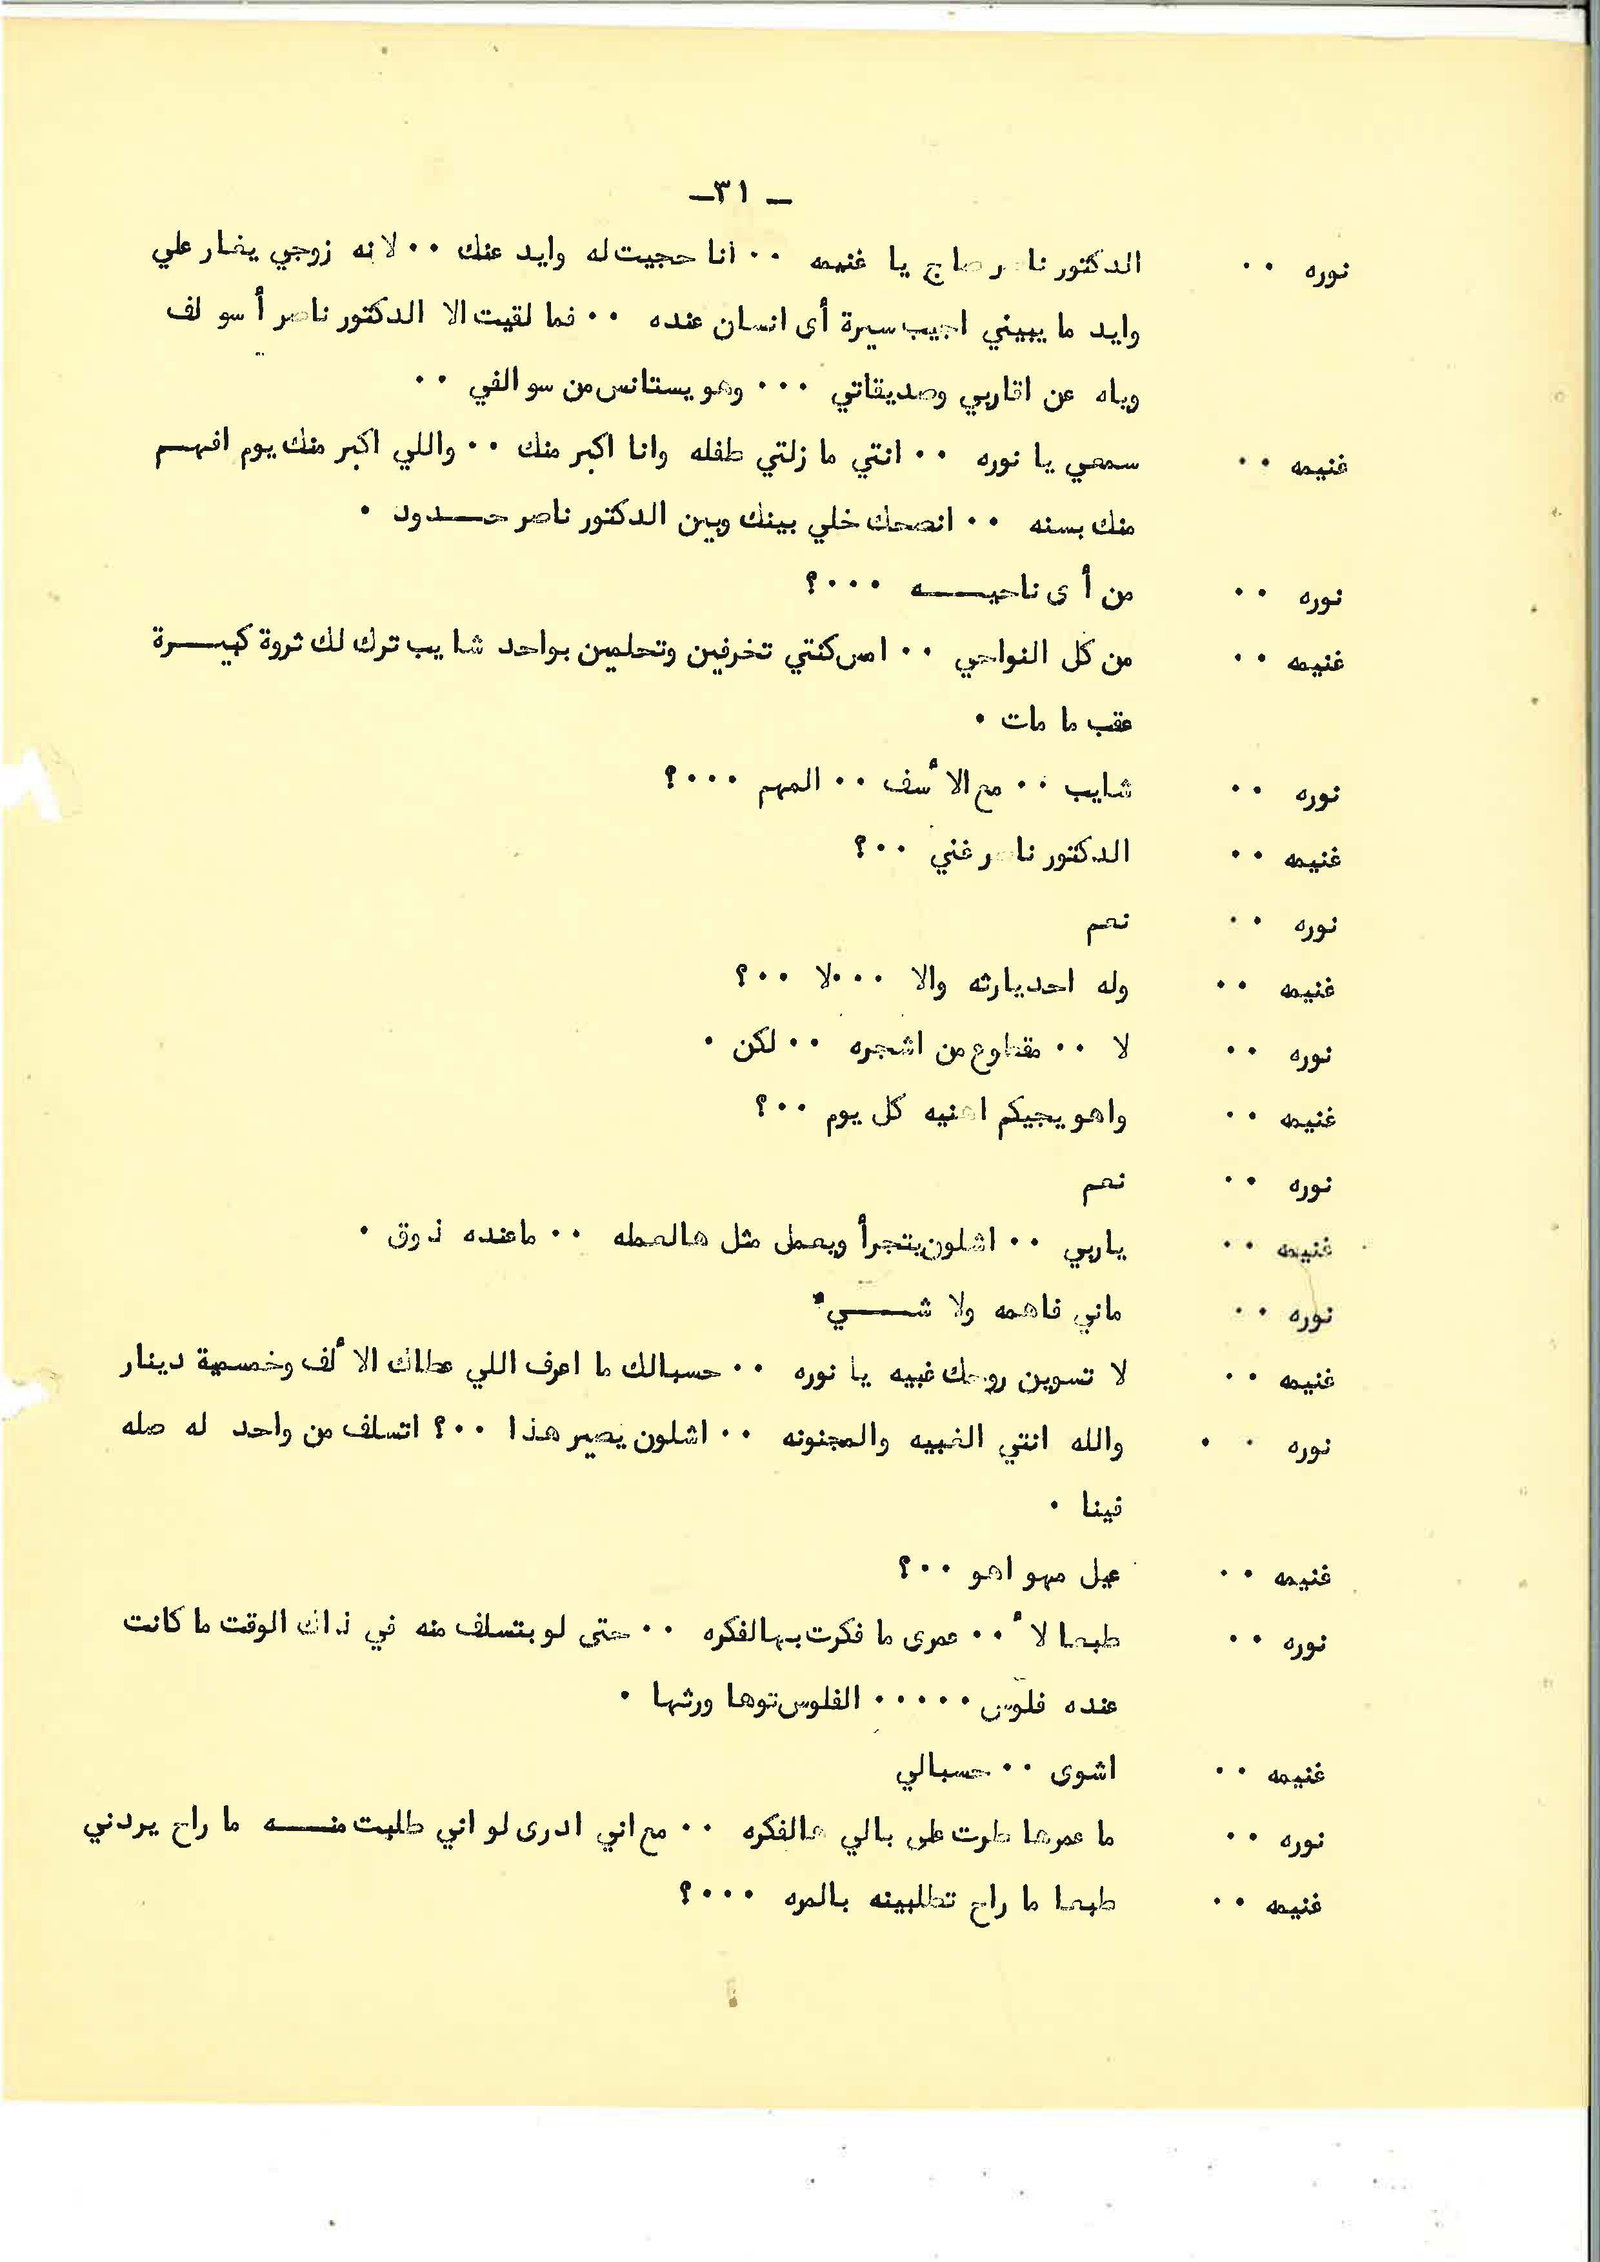 – ٣١–
نوره ‎٠٠ الدكتور ناصر صاج يا غنيمه ٠٠ انا حجيت له وايد عنك ٠٠ لانه زوجي يغار علي
وايد ما يبيني اجيب سيرة أى انسان عنده ٠٠ فما لقيت الا الدكتور ناصر أسولف
وياه عن اقاربي وصديقاتي ٠٠٠ وهو يستانس من سوالفي ٠٠
غنيمه ٠٠ سمعي يا نوره ٠٠ انتي ما زلتي طفله وانا اكبر منك ٠٠ واللي اكبر منك يوم افهم
منك بسنه ٠٠ انصحك خلي بينك وبين الدكتور ناصر حدود ٠
نوره ٠٠ من أى ناحيه ٠٠٠؟
غنيمه ٠٠ من كل النواحي ٠٠ امس كنتي تخرفين وتحلمين بواحد شايب ترك لك ثروة كبيرة
عقب ما مات ٠
نوره ٠٠ شايب ٠٠ مع الأسف ٠٠ المهم ٠٠٠؟
غنيمه ٠٠ الدكتور ناصر غني ٠٠؟
نوره ٠٠ نعم
غنيمه ٠٠ وله احد يارثه والا ٠٠٠ لا ٠٠؟
نوره ٠٠ لا ٠٠ مقطوع من اشجره ٠٠ لكن ٠
غنيمه ٠٠ واهو يجيكم اهنيه كل يوم ٠٠؟
نوره ٠٠ نعم
غنيمه ٠٠ ياربي ٠٠ اشلون يتجرأ ويعمل مثل هالعمله ٠٠ ماعنده ذوق ٠
نوره ٠٠ ماني فاهمه ولا شي٠
غنيمه ٠٠ لا تسوين روحك غبيه يا نوره ٠٠ حسبالك ما اعرف اللي عطاك الألف وخمسمية دينار
نوره ٠ ٠ والله انتي الغبيه والمجنونه ٠٠ اشلون يصير هذا ٠٠؟ اتسلف من واحد له صله
فينا ٠
غنيمه ٠٠ عيل مهو اهو ٠٠؟
نوره ٠٠ طبعا لأ ٠٠ عمرى ما فكرت بهالفكره ٠٠ حتى لو بتسلف منه في ذاك الوقت ما كانت
عنده فلوس ٠٠٠٠٠ الفلوس توها ورثها ٠
غنيمه ٠٠ اشوى ٠٠ حسبالي
نوره ٠٠ ما عمرها طرت على بالي هالفكره ٠٠ مع اني ادرى لو اني طلبت منه ما راح يردني
غنيمه ٠٠ طبعا ما راح تطلبينه بالمره ٠٠٠؟